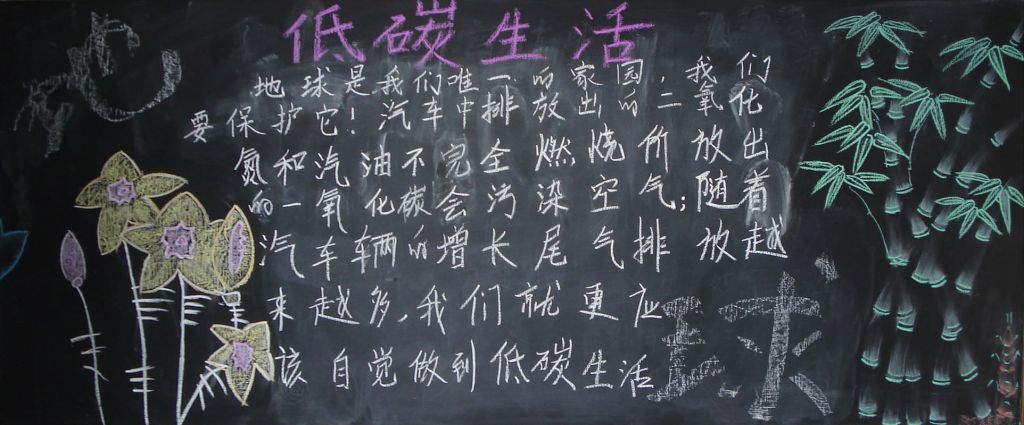 低碳生活
地球是我们唯一的家园，我们
要保护它！汽车中排放出的二氧化
氮和汽油不完全燃烧价放出
的一氧化碳会污染空气；随着
汽车车辆的增长尾气排放越
来越多，我们就更应
该自觉做到低碳生活
球